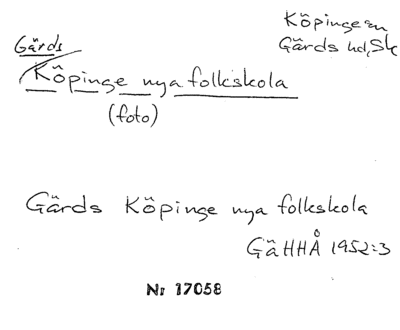 Köpinge sn
Gärds hd, Sk
Gärds
Köpinge nya folkskola
(foto)
Gärds Köpinge nya folkskola
GäHHÅ 1952:3
Nr 17058